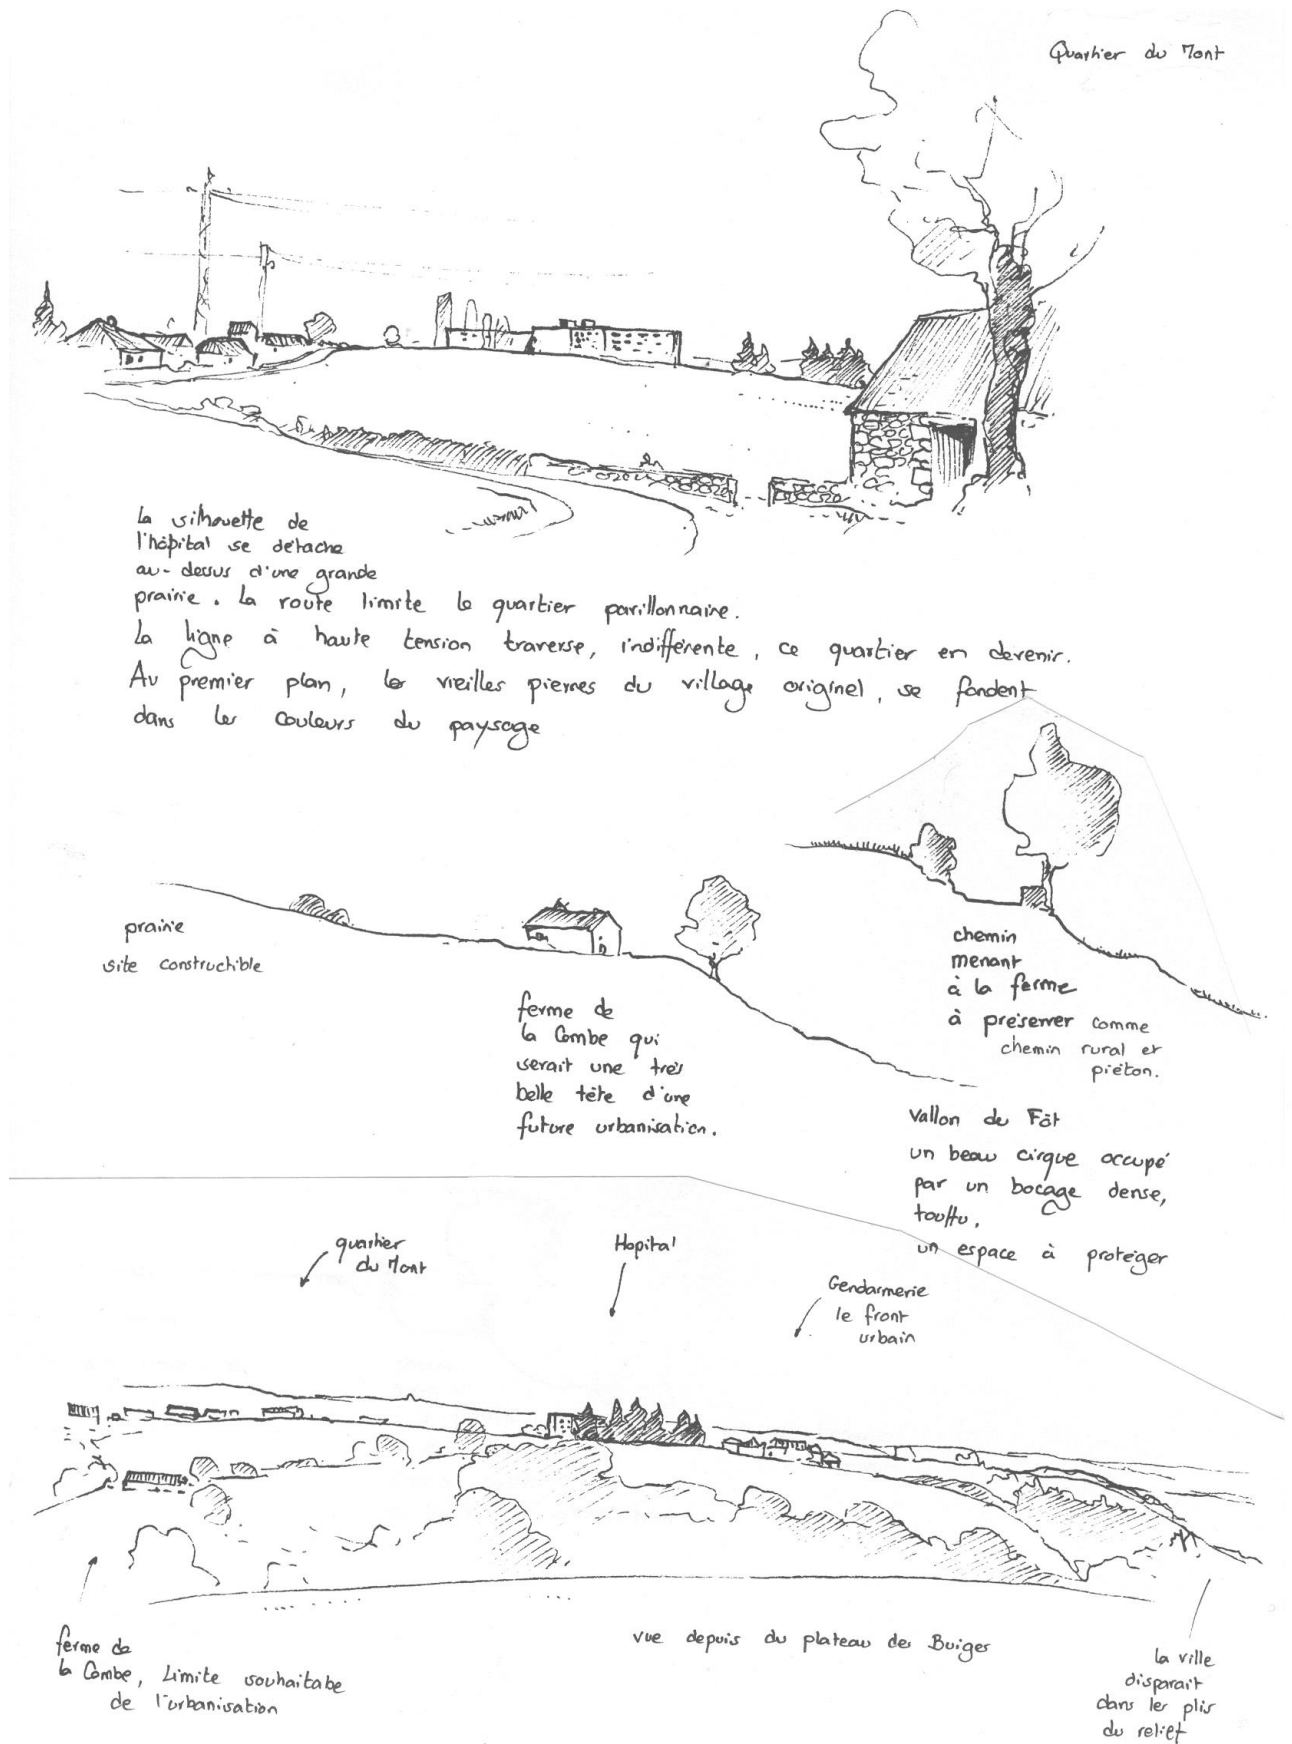 Quartier du Mont
La silhouette de
l'hôpital se détache
au-dessus d'une grande
prairie. La route limite le quartier pavillonnaire.
La ligne à haute tension traverse, indifférente, ce quartier en devenir.
Au premier plan, les vieilles pierres du village originel, se fondent
dans les couleurs du paysage
prairie
site constructible
ferme de
la Combe qui
serait une très
belle tête d'une
future urbanisation.
chemin
menant
à la ferme
à préserver comme
chemin rural et
piéton.
Vallon du Fôt
un beau cirque occupé
par un bocage dense,
touffu.
un espace à protéger
quartier
du Mont
Hopital
Gendarmerie
le front
urbain
ferme de
la Combe, Limite souhaitabe
de l'urbanisation
vue depuis du plateau des Buiges
la ville
disparait
dans les plis
du relief